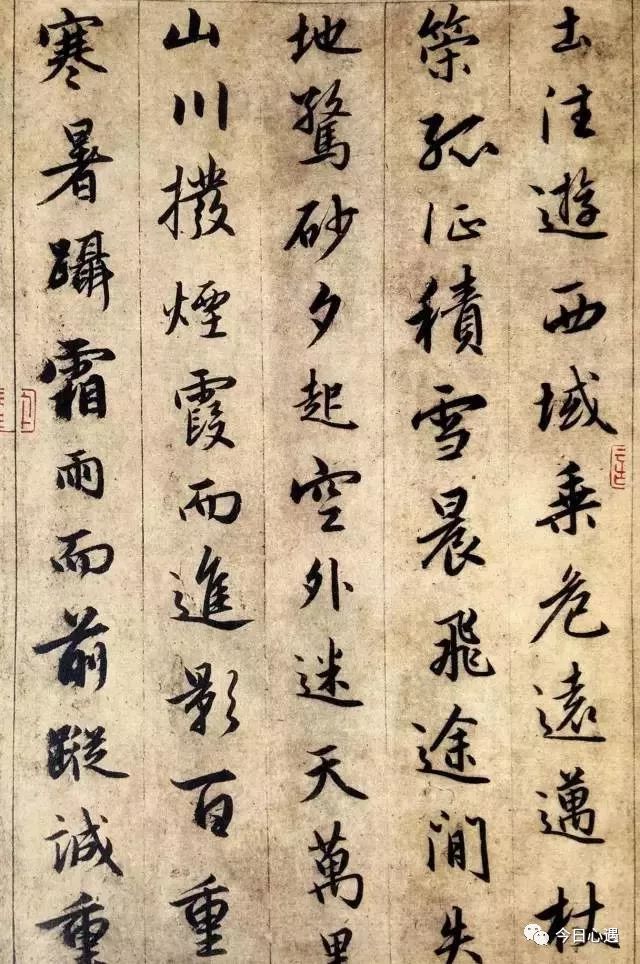 土往遊西域乘危遠邁杖
策孤征積雪晨飛途閒失
地驚砂夕起空外迷天萬里
山川撥煙霞而進影百重
寒暑躡霜雨而前蹤誠重
今日心遇